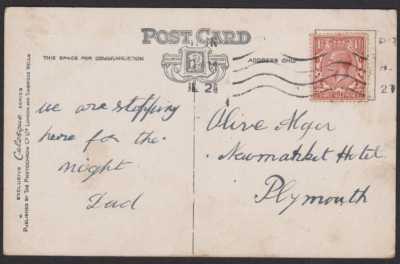 POST CARD
THIS SPACE FOR COMMUNICATION
ADDRESS ONLY
we are stopping
here for the
night
Dad
Olive
Newmarket Hotel
Plymouth
EXCLUSIVE Celesque SERIES
PUBLISHED BY THE PHOTOCHROM CO LTD LONDON AND TUNBRIDGE WELLS